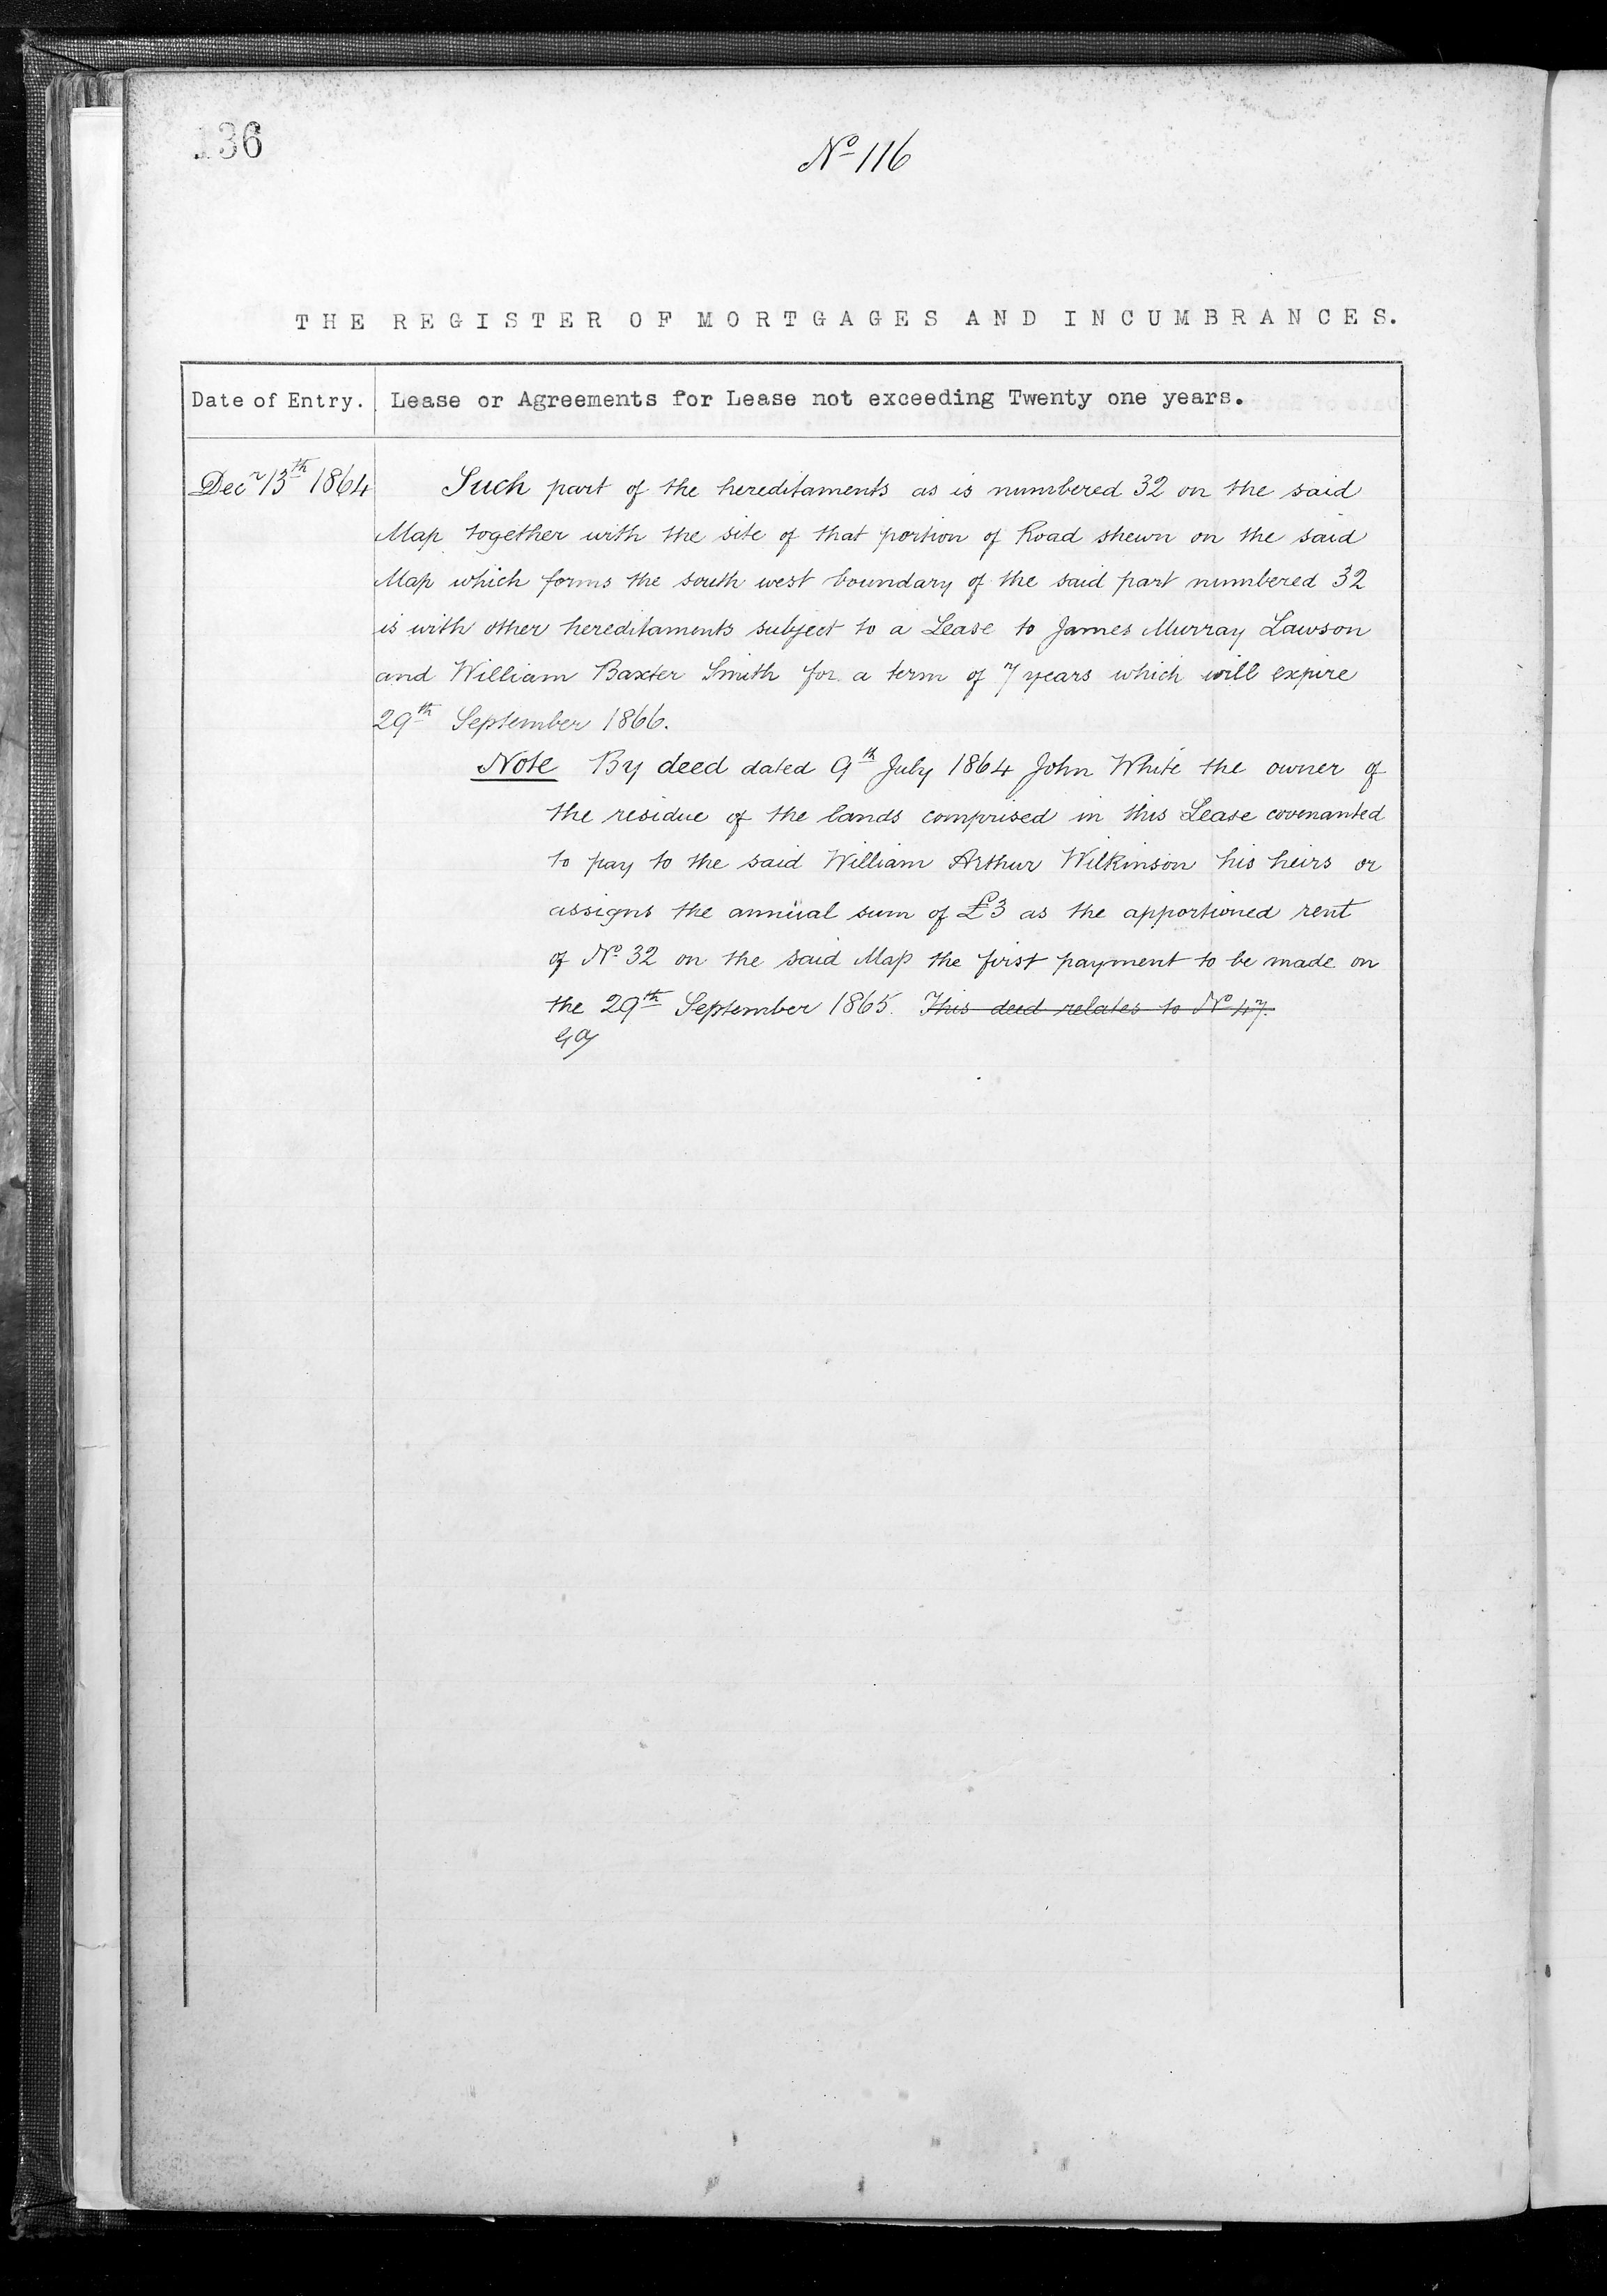 136
No 116
THE REGISTER OF MORTGAGES AND INCUMBRANCES.
Date of Entry. Lease or Agreements for Lease not exceeding Twenty one years.
Decr 13th 1864 Such part of the hereditaments as is numbered 32 on the said
Map together with the site of that portion of Road shewn on the said
Map which forms the south west boundary of the said part numbered 32
is with other hereditaments subject to a Lease to James Murray Lawson
and William Baxter Smith for a term of 7 years which will expire
29th September 1866.
Note By deed dated 9th July 1864 John White the owner of
the residue of the lands comprised in this Lease covenanted
to pay to the said William Arthur Wilkinson his heirs or
assigns the annual sum of £3 as the apportioned rent
of No 32 on the said Map the first payment to be made on
the 29th September 1865. This deed relates to No 47.